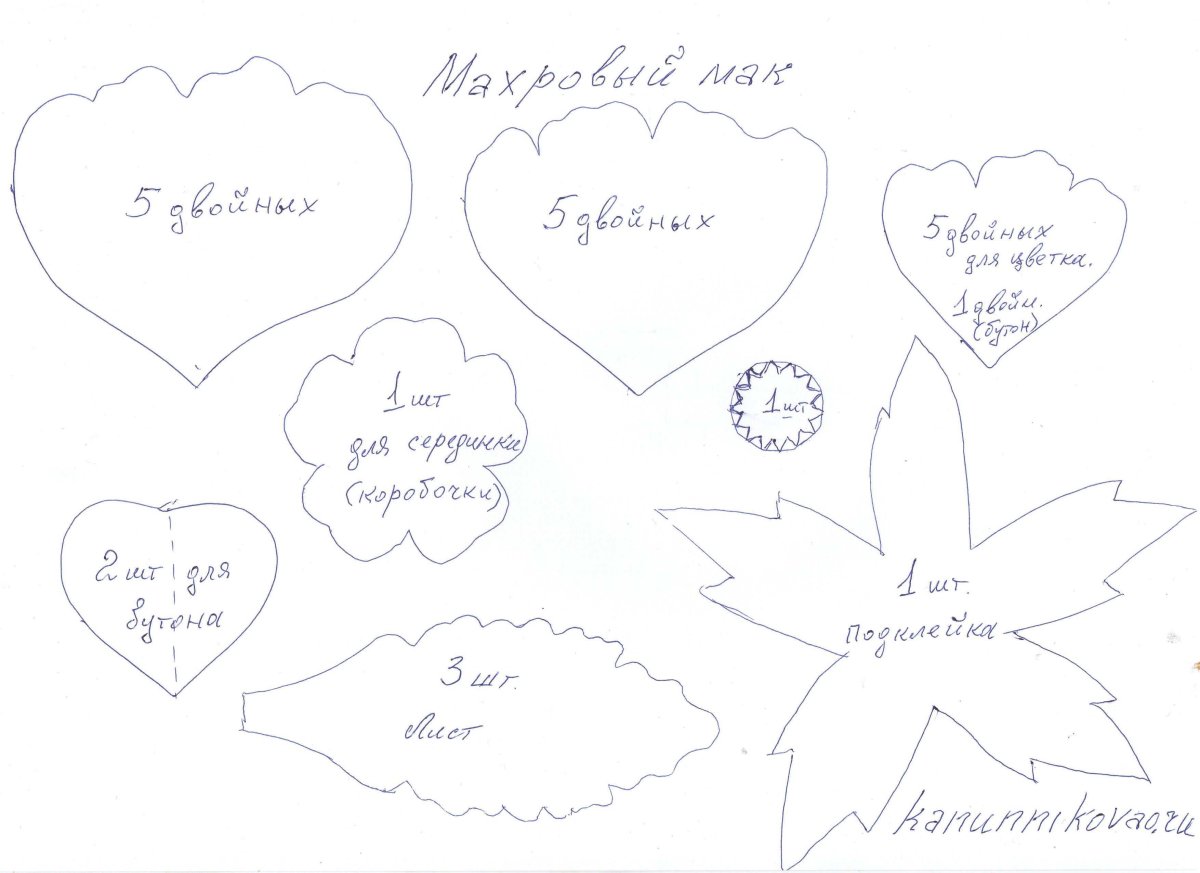 Махровый мак
5 двойных
5 двойных
5 двойных
для цветка.
1 двойн.
(бутон)
1 шт
для серединки
(коробочки)
1 шт
2 шт для
бутона
1 шт.
подклейка
3 шт.
Лист
kanunnikovao.ru